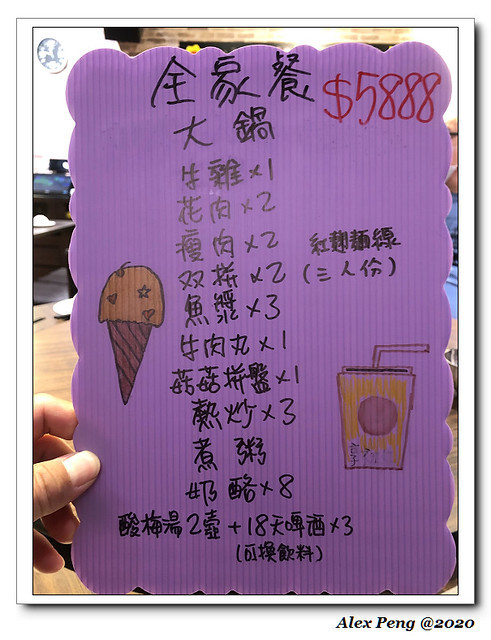 全家餐 $5888
大鍋
牛雜×1
花肉×2
瘦肉×2
紅麴麵線
双拼×2
(三人份)
魚漿×3
牛肉丸×1
菇菇拼盤×1
熱炒×3
煮粥
奶酪×8
酸梅湯2壺+18天啤酒×3
(可換飲料)
Alex Peng @2020